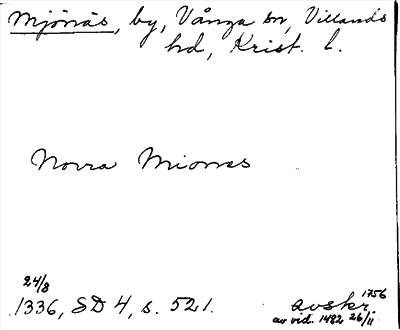 Mjönäs, by, Vånga sn, Villands
hd, Krist. l.
Norra Mionæs
24/8
1336, SD 4, s. 521.
avskr. 1756
av vid. 1482 26/11